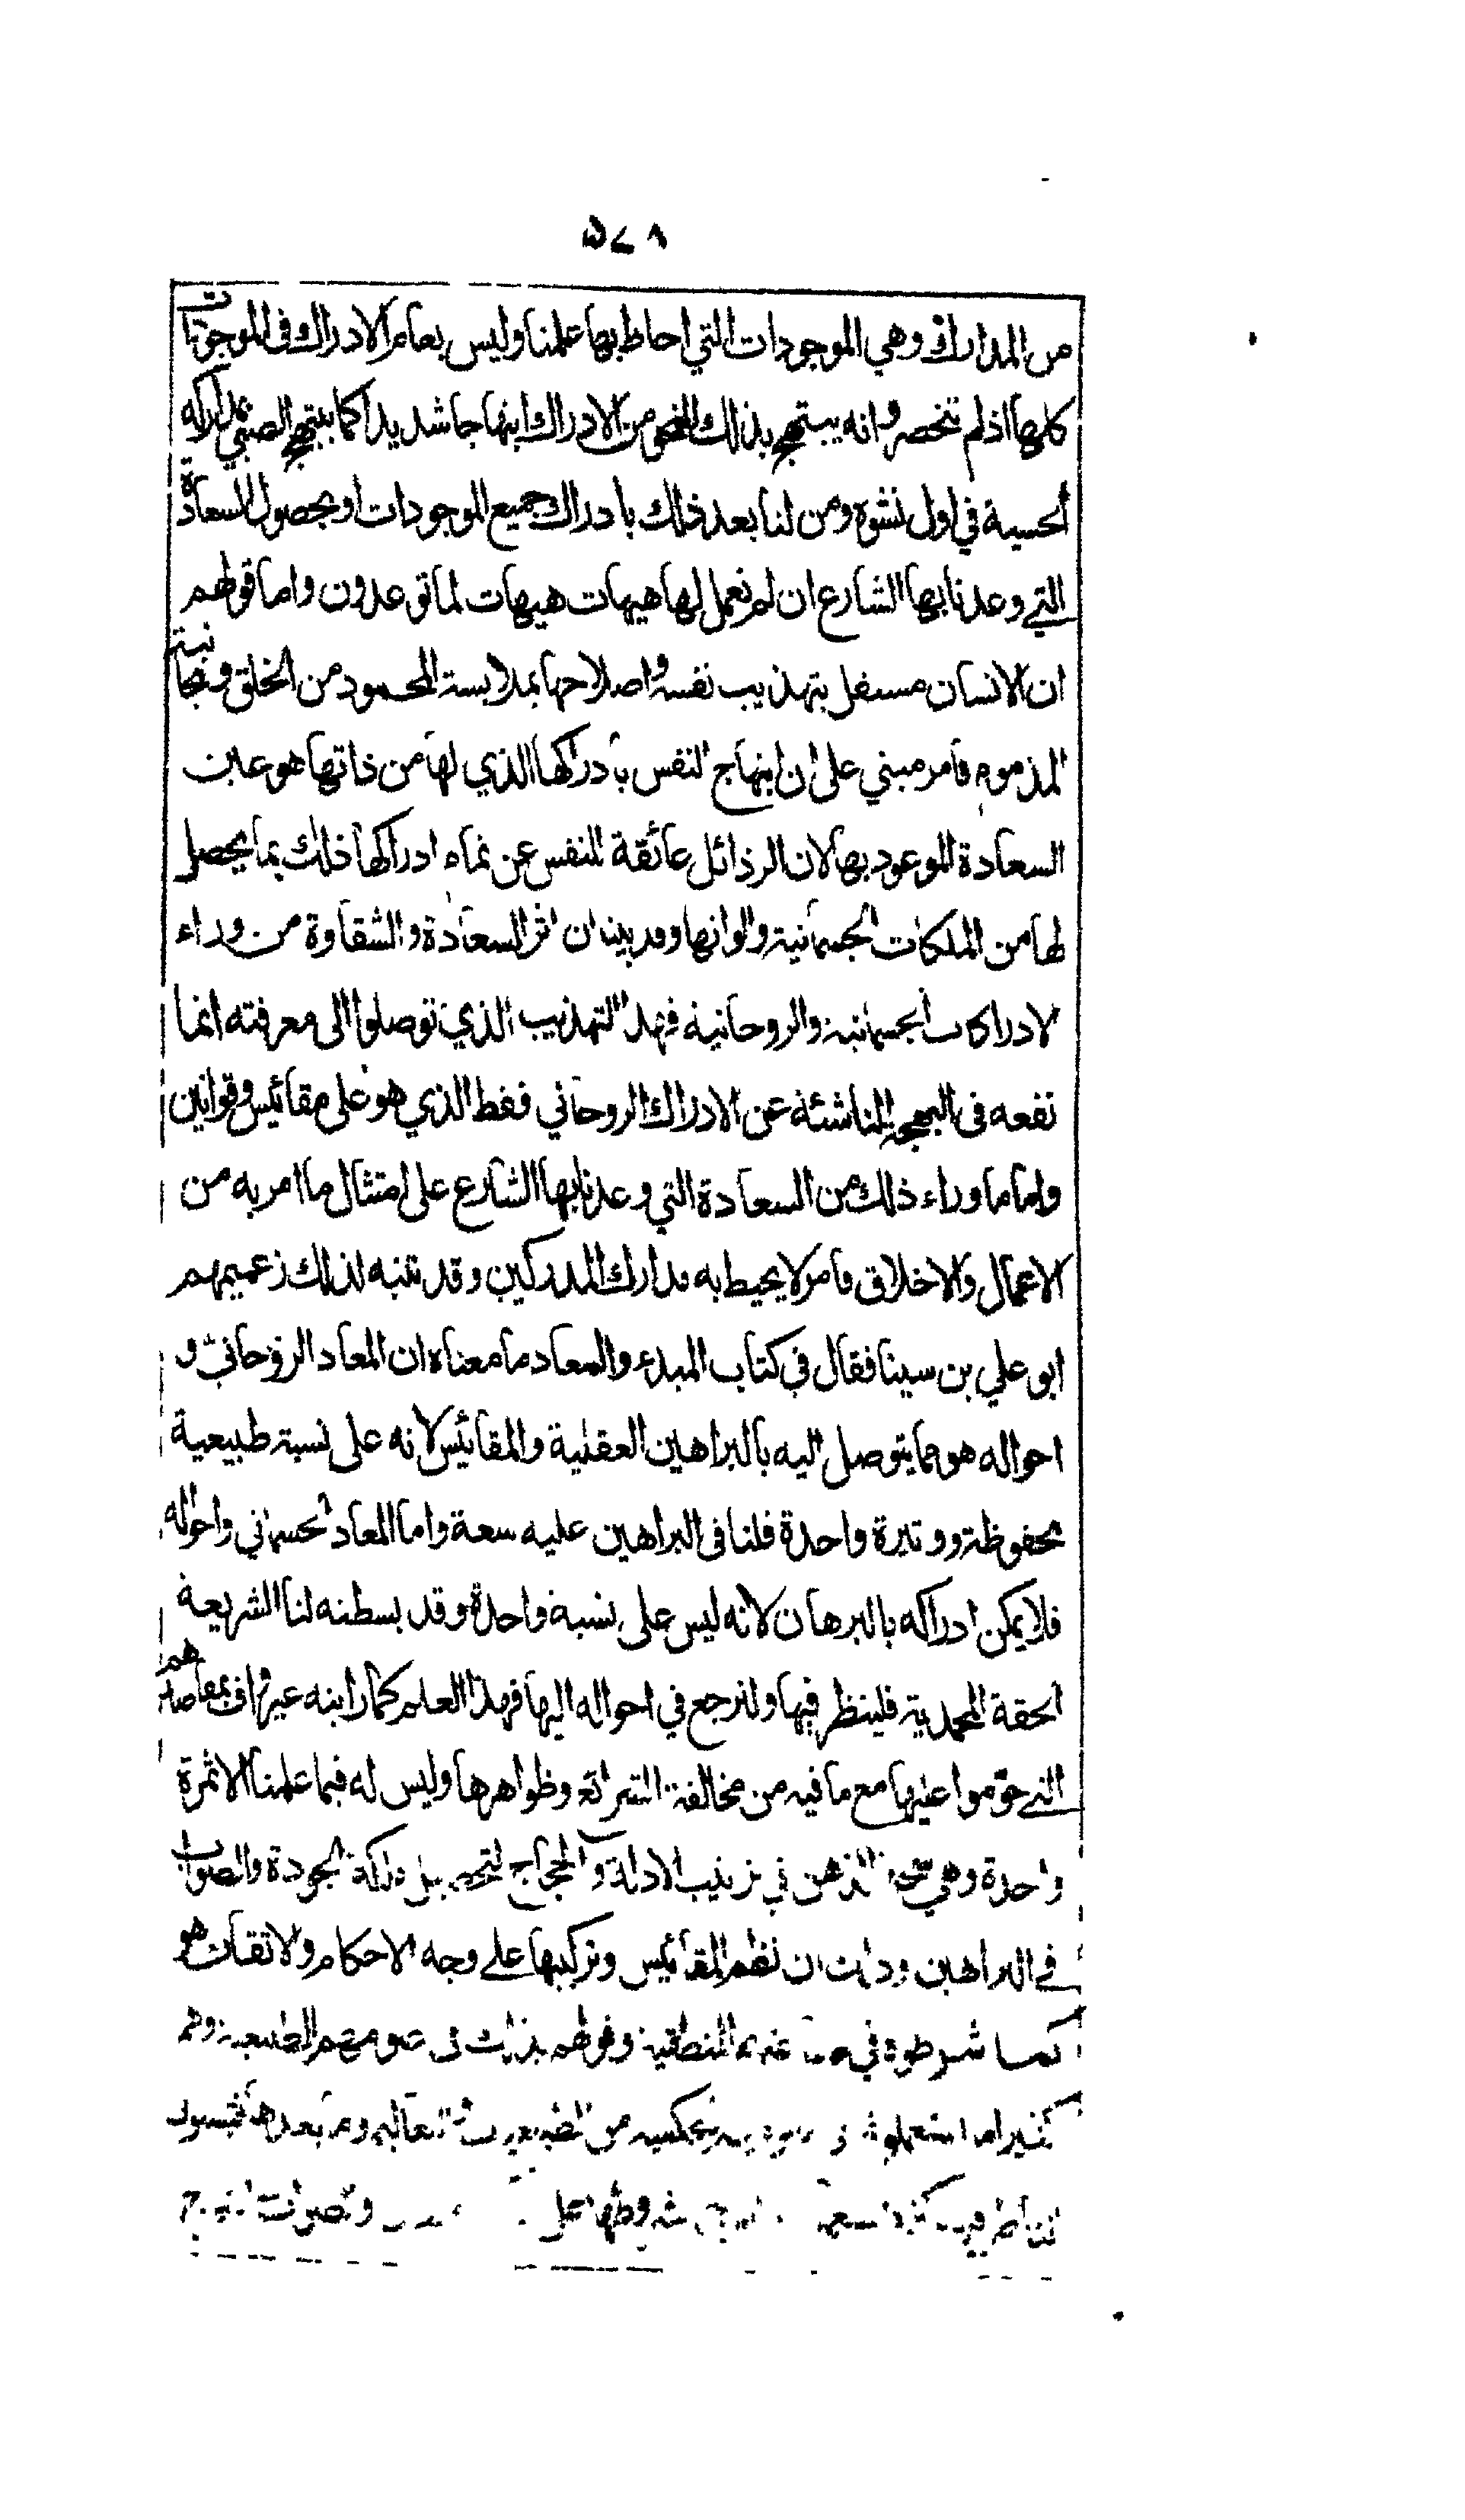 ٥٧٨
من المدارك وهي الموجودات التي احاط بها علمنا وليس بعام الادراك في الموجودات
كلها اذ لم تنحصر وانه يبتهج بذلك النحو من الادراك ابتهاجا شديدا كما يبتهج الصبي بمداركه
الحسية في اول نشوه ومن لنا بعد ذلك بادراك جميع الموجودات او بحصول السعادة
التي وعدنا بها الشارع ان لم نعمل لها هيهات هيهات لما توعدون واما قولهم
ان الانسان مستقل بتهذيب نفسه واصلاحها بملابسة المحمود من الخلق ومجانبة
المذموم فامر مبني على ان ابتهاج النفس بادراكها الذي لها من ذاتها هو عين
السعادة الموعود بها لان الرذائل عائقة للنفس عن تمام ادراكها ذلك بما يحصل
لها من الملكات الجسمانية والوانها وقد بينا ان اثر السعادة والشقاوة من وراء
الادراكات الجسمانية والروحانية فهذا التهذيب الذي توصلوا الى معرفته انما
نفعه في البهجة الناشئة عن الادراك الروحاني فقط الذي هو على مقائيس وقوانين
واما ما وراء ذلك من السعادة التي وعدنا بها الشارع على امتثال ما امر به من
الاعمال والاخلاق فامر لا يحيط به مدارك المدركين وقد تنبه لذلك زعيمهم
ابو علي بن سينا فقال في كتاب المبدء والمعاد ما معناه ان المعاد الروحاني و
احواله هو مما يتوصل اليه بالبراهين العقلية والمقائيس لانه على نسبة طبيعية
محفوظة ووتيرة واحدة فلنا في البراهين عليه سعة واما المعاد الجسماني واحواله
فلا يمكن ادراكه بالبرهان لانه ليس على نسبة واحدة وقد بسطته لنا الشريعة
الحقة المحمدية فلينظر فيها ولنرجع في احواله اليها فهذا العلم كما رايته غير واف بمقاصدهم
التي حوموا عليها مع ما فيه من مخالفة الشرائع وظواهرها وليس له فيما علمنا الا ثمرة
واحدة وهي شحذ الذهن في ترتيب الادلة والحجاج لتحصيل ملكة الجودة والصواب
في البراهين وذلك ان نظم المقائيس وتركيبها على وجه الاحكام والاتقان هو
كما شرطوه في المنطقية وقولهم بذلك في علومهم الطبيعية وهم
كثيرا ما يستعملونها في الحكمية من الطبيعيات والتعاليم وما بعدها فيستولي
الناظر فيها بكثرة بشروطها على والصواب في الحجج